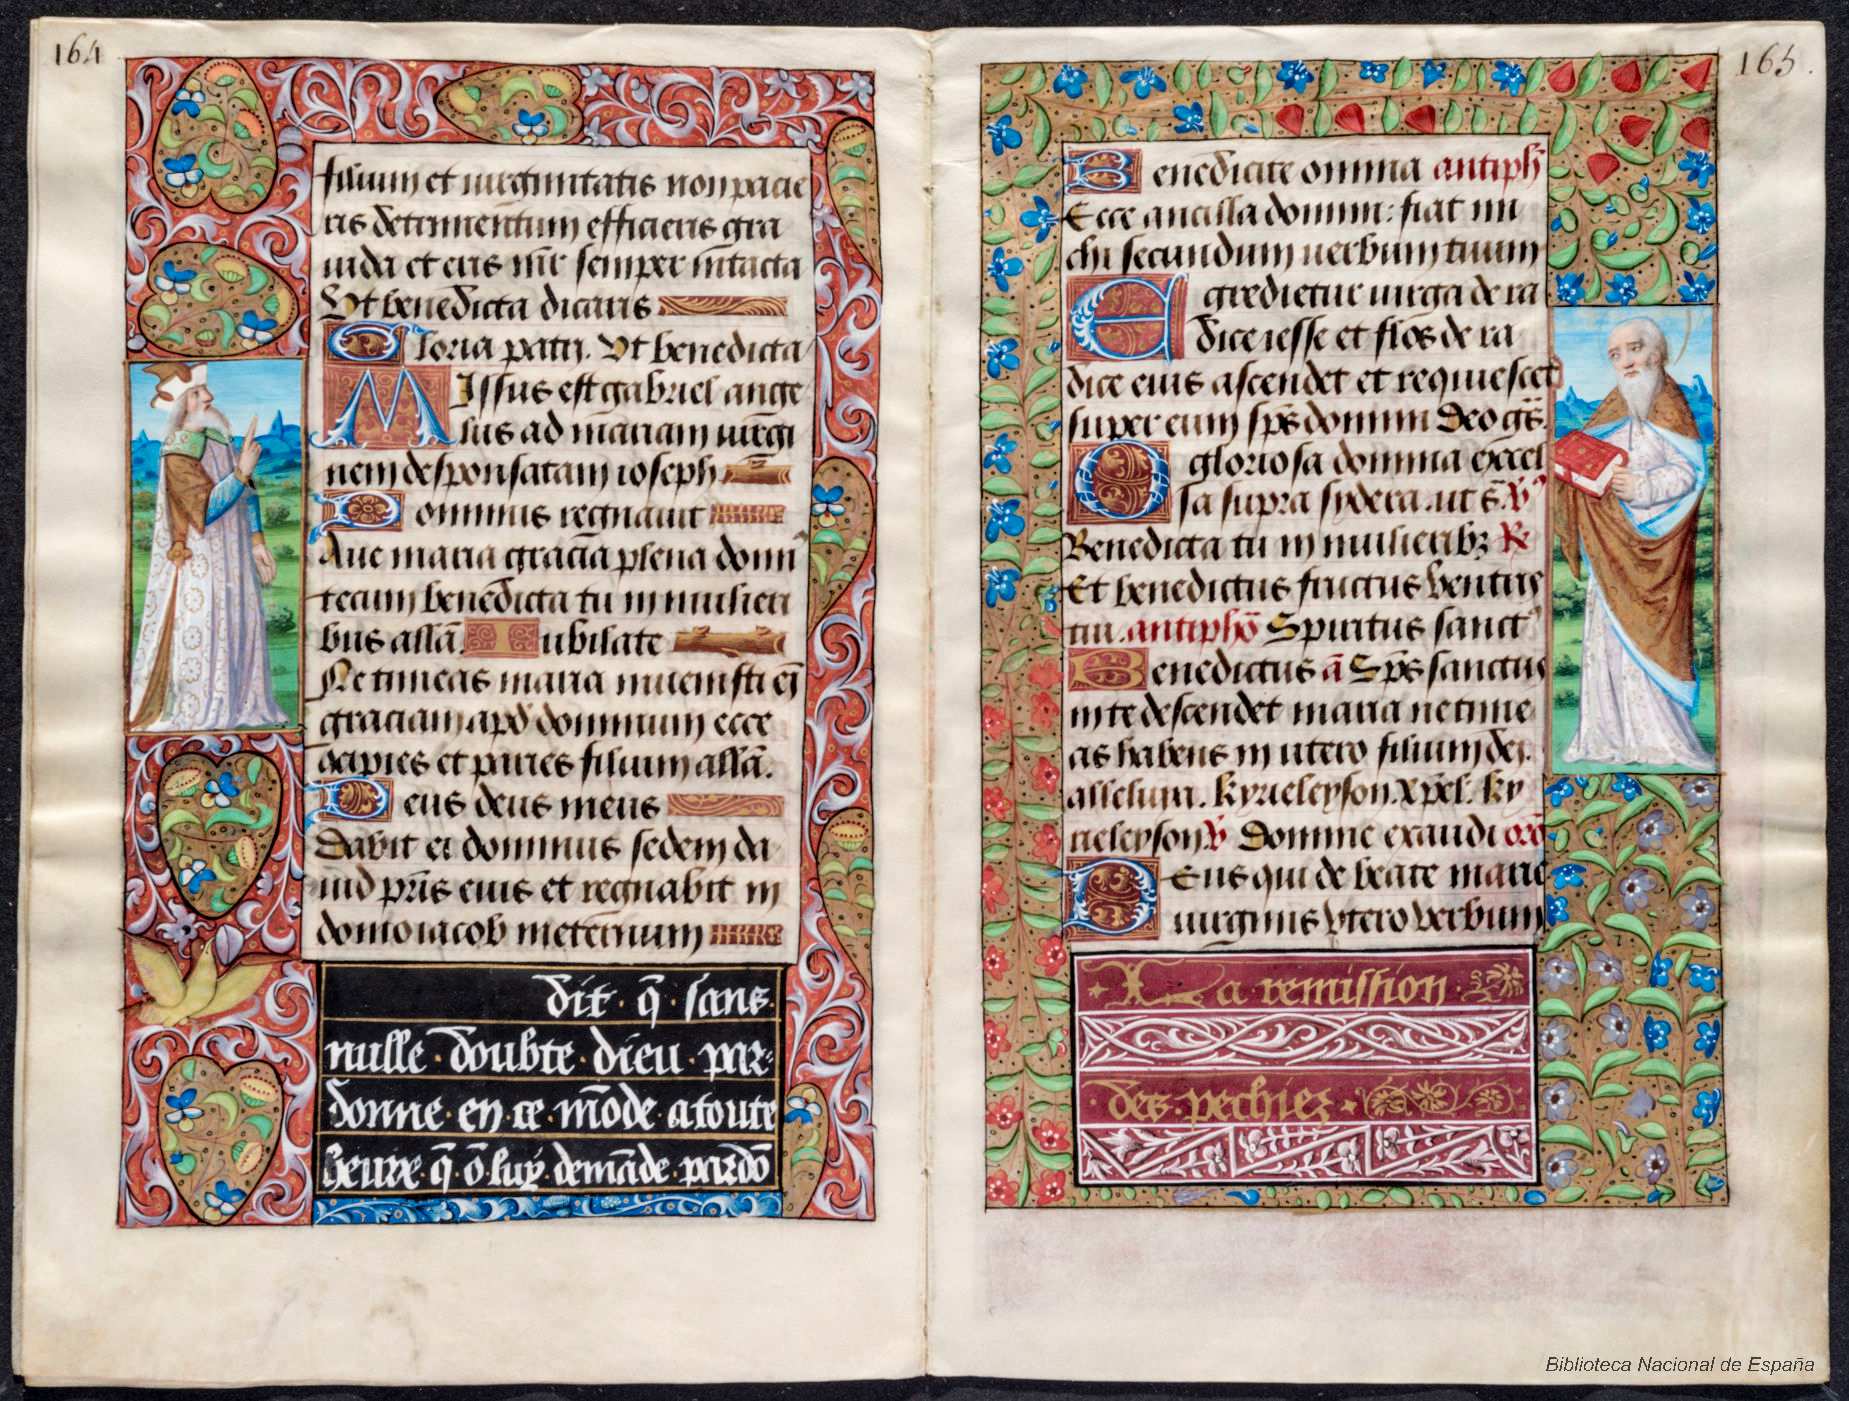 164
filium et uirginitatis non pacie
ris detrimentum efficieris gra
uida et eris mr̄ semper intacta
Vt benedicta dicaris
Gloria patri. Vt benedicta
Missus est gabriel ange
lus ad mariam uirgi
nem desponsatam ioseph
Dominus regnauit
Aue maria gracia plena domi
tecum benedicta tu in mulieri
bus allā. Iubilate
Ne timeas maria inuenisti em̄
graciam apd' dominum ecce
cipies et paries filium allā.
Deus deus meus
Dabit ei dominus sedem da
uid pr̄is eius et regnabit in
domo iacob in eternum
dit · q̄ · sans
nulle · doubte · dieu · par-
donne · en · ce · mōde · a toute
heure · q̄ · ō luy · demāde · pardō
165.
Benedicite omnia antiph̄
Ecce ancilla domini: fiat mi
chi secundum uerbum tuum
Egredietur uirga de ra
dice iesse et flos de ra
dice eius ascendet et requiescet
super eum sp̄s domini Deo gr̄s.
O gloriosa domina excel
sa supra sydera. ut s̄. V̄
Benedicta tu in mulieribz R̄
Et benedictus fructus ventris
tui. antiphō Spiritus sanct'
Benedictus ā Sp̄s sanctus
in te descendet maria ne time
as habens in utero filium dei.
alleluia. kyrieleyson. xp̄el. ky
rieleyson V̄ Domine exaudi orō
Deus qui de beate marie
uirginis vtero verbum
La remission
des pechiez
Biblioteca Nacional de España